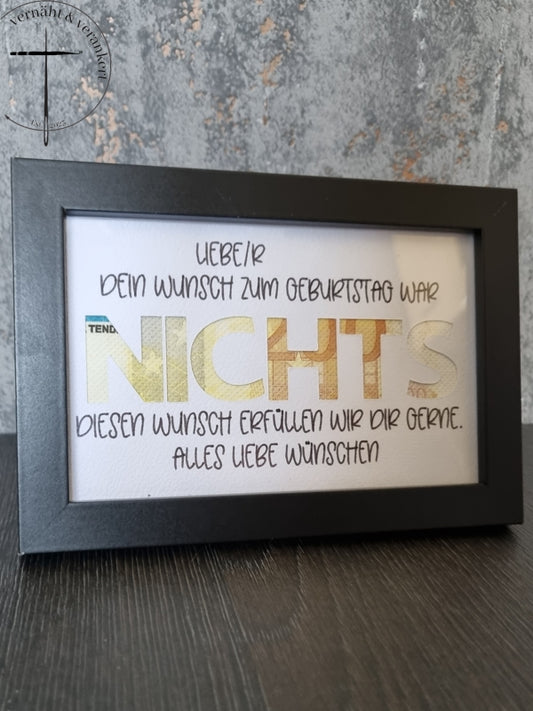 vernäht & verankert
LIEBE/R
DEIN WUNSCH ZUM GEBURTSTAG WAR
TEND
NICHTS
DIESEN WUNSCH ERFÜLLEN WIR DIR GERNE.
ALLES LIEBE WÜNSCHEN